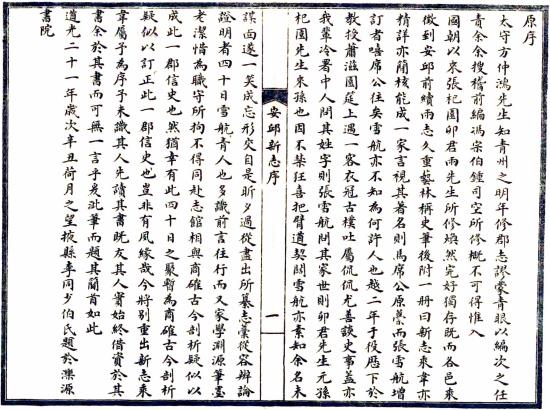 原序
太守方仲鴻先生知青州之明年修郡志謬蒙青眼以編次之任
責余余搜稽前編馮宗伯鍾司空所修概不可得惟入
國朝以來張杞園卯君兩先生所修煥然完好獨存既而各邑来
徵到安邱前續兩志久重藝林稱史筆後附一冊曰新志来章亦
精詳亦簡核能成一家言視其著名則馬席公原纂而張雪航增
訂者嘻席公往矣雪航亦不知為何許人也越二年予役歷下於
教授蕭滋園筵上遇一客衣冠古樸吐屬侃侃尤善談史事蓋亦
我輩冷署中人問其姓字則張雪航問其家世則卯君先生元孫
杞園先生来孫也因不禁狂喜把臂道契闊雪航亦素知余名未
安邱新志序
一
謀面遂一笑成忘形交自是昕夕過從盡出所纂志藁從容辯論
證明者四十日雪航青人也多識前言往行而又家學淵源筆墨
老潔惜為職守所拘不得同赴志館相與商確古今剖析疑似以
成此一郡信史也然猶幸有此四十日之聚暫為商確古今剖析
疑似以訂正此一郡信史也豈非有夙緣哉今將別重出新志来
章屬予為序予未識其人先讀其書既友其人實始終借資於其
書余於其書而可無一言乎爰泚筆而題其簡首如此
道光二十一年歲次辛丑荷月之望掖縣李同夕伯氏題於濼源
書院